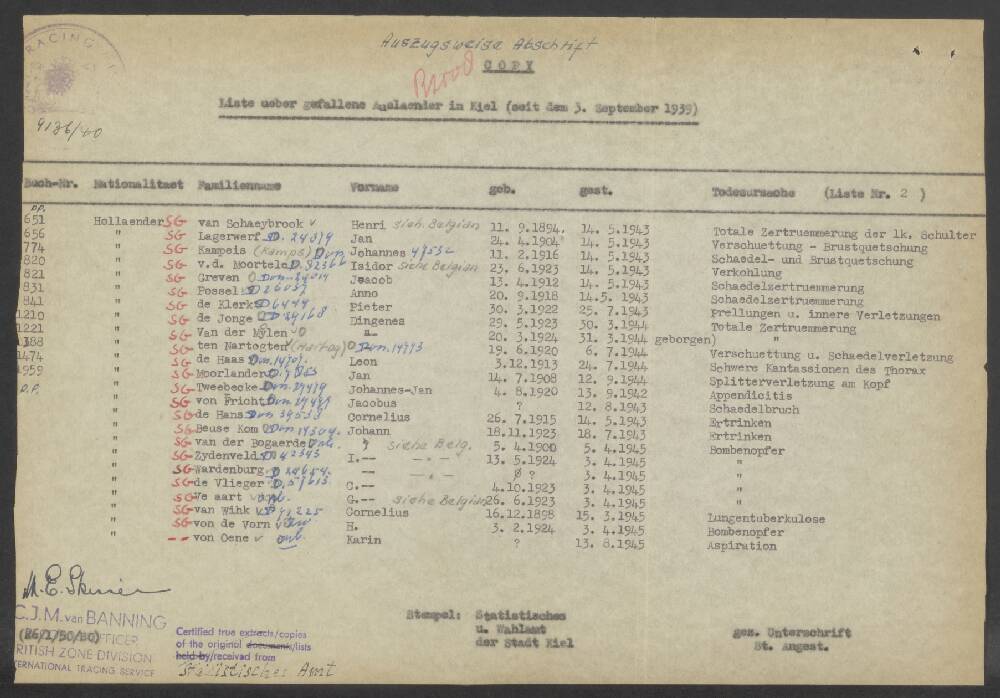 Auszugsweise Abschrift
RACING
COPY
Brood
Liste ueber gefallene Auslaender in Kiel (seit dem 3. September 1939)
9186/40
Buch-Nr. Nationalitaet Familienname Vorname geb. gest. Todesursache (Liste Nr. 2 )
P.P.
651 Hollaender SG van Schaeybrook v Henri sieh. Belgian 11. 9.1894. 14. 5.1943 Totale Zertruemmerung der lk. Schulter
656 " SG Lagerwerf D. 24879 Jan 24. 4.1904 14. 5.1943 Verschuettung - Brustquetschung
774 " SG Kampeis (Kamps) Dvn Johannes 49532 11. 2.1916 14. 5.1943 Schaedel- und Brustquetschung
820 " SG v.d. Moortele Isidor siehe Belgian 23. 6.1923 14. 5.1943 Verkohlung
821 " SG Greven Jsacob 13. 4.1912 14. 5.1943 Schaedelzertruemmerung
831 " SG Possel Anno 20. 9.1918 14.5. 1943 Schaedelzertruemmerung
841 " SG de Klerk D 6444 Pieter 30. 3.1922 25. 7.1943 Prellungen u. innere Verletzungen
1210 " SG de Jonge Dingenes 29. 5.1923 30. 3.1944 Totale Zertruemmerung
1221 " SG Van der Mylen vO 20. 3.1924 31. 3.1944 geborgen) "
1388 " SG ten Hartogten (Hartog) 19. 6.1920 6. 7.1944 Verschuettung u. Schaedelverletzung
1474 " SG de Haas Leon 3.12.1913 24. 7.1944 Schwere Kantassionen des Thorax
1959 " SG Moorlander Jan 14. 7.1908 12. 9.1944 Splitterverletzung am Kopf
D.P. " SG Tweeboeke Johannes-Jan 4. 8.1920 13. 9.1942 Appendicitis
" SG von Fricht Jacobus ? 12. 8.1943 Schaedelbruch
" SG de Hans Cornelius 26. 7.1915 14. 5.1943 Ertrinken
" SG Beuse Kom Johann 18.11.1923 18. 7.1943 Ertrinken
" SG van der Bogaerde ? siehe Belg. 5. 4.1900 5. 4.1945 Bombenopfer
" SG Zydenveld D 42343 I.-- - " - 13. 5.1924 3. 4.1945 "
" SG Wardenburg -- - " - ? 3. 4.1945 "
" SG de Vlieger C.-- 4.10.1923 3. 4.1945 "
" SG Ve aart G.-- siehe Belgian 26. 6.1923 3. 4.1945 "
" SG van Wihk Cornelius 16.12.1898 15. 3.1945 Lungentuberkulose
" SG von de Vorn H. 3. 2.1924 3. 4.1945 Bombenopfer
" -- von Oene v Karin ? 13. 8.1945 Aspiration
C.J.M. van BANNING
(26/1/50/BO) OFFICER
BRITISH ZONE DIVISION
INTERNATIONAL TRACING SERVICE
Certified true extracts/copies
of the original documents/lists
held by/received from
Statistisches Amt
Stempel: Statistisches
u. Wahlamt
der Stadt Kiel
gez. Unterschrift
St. Angest.